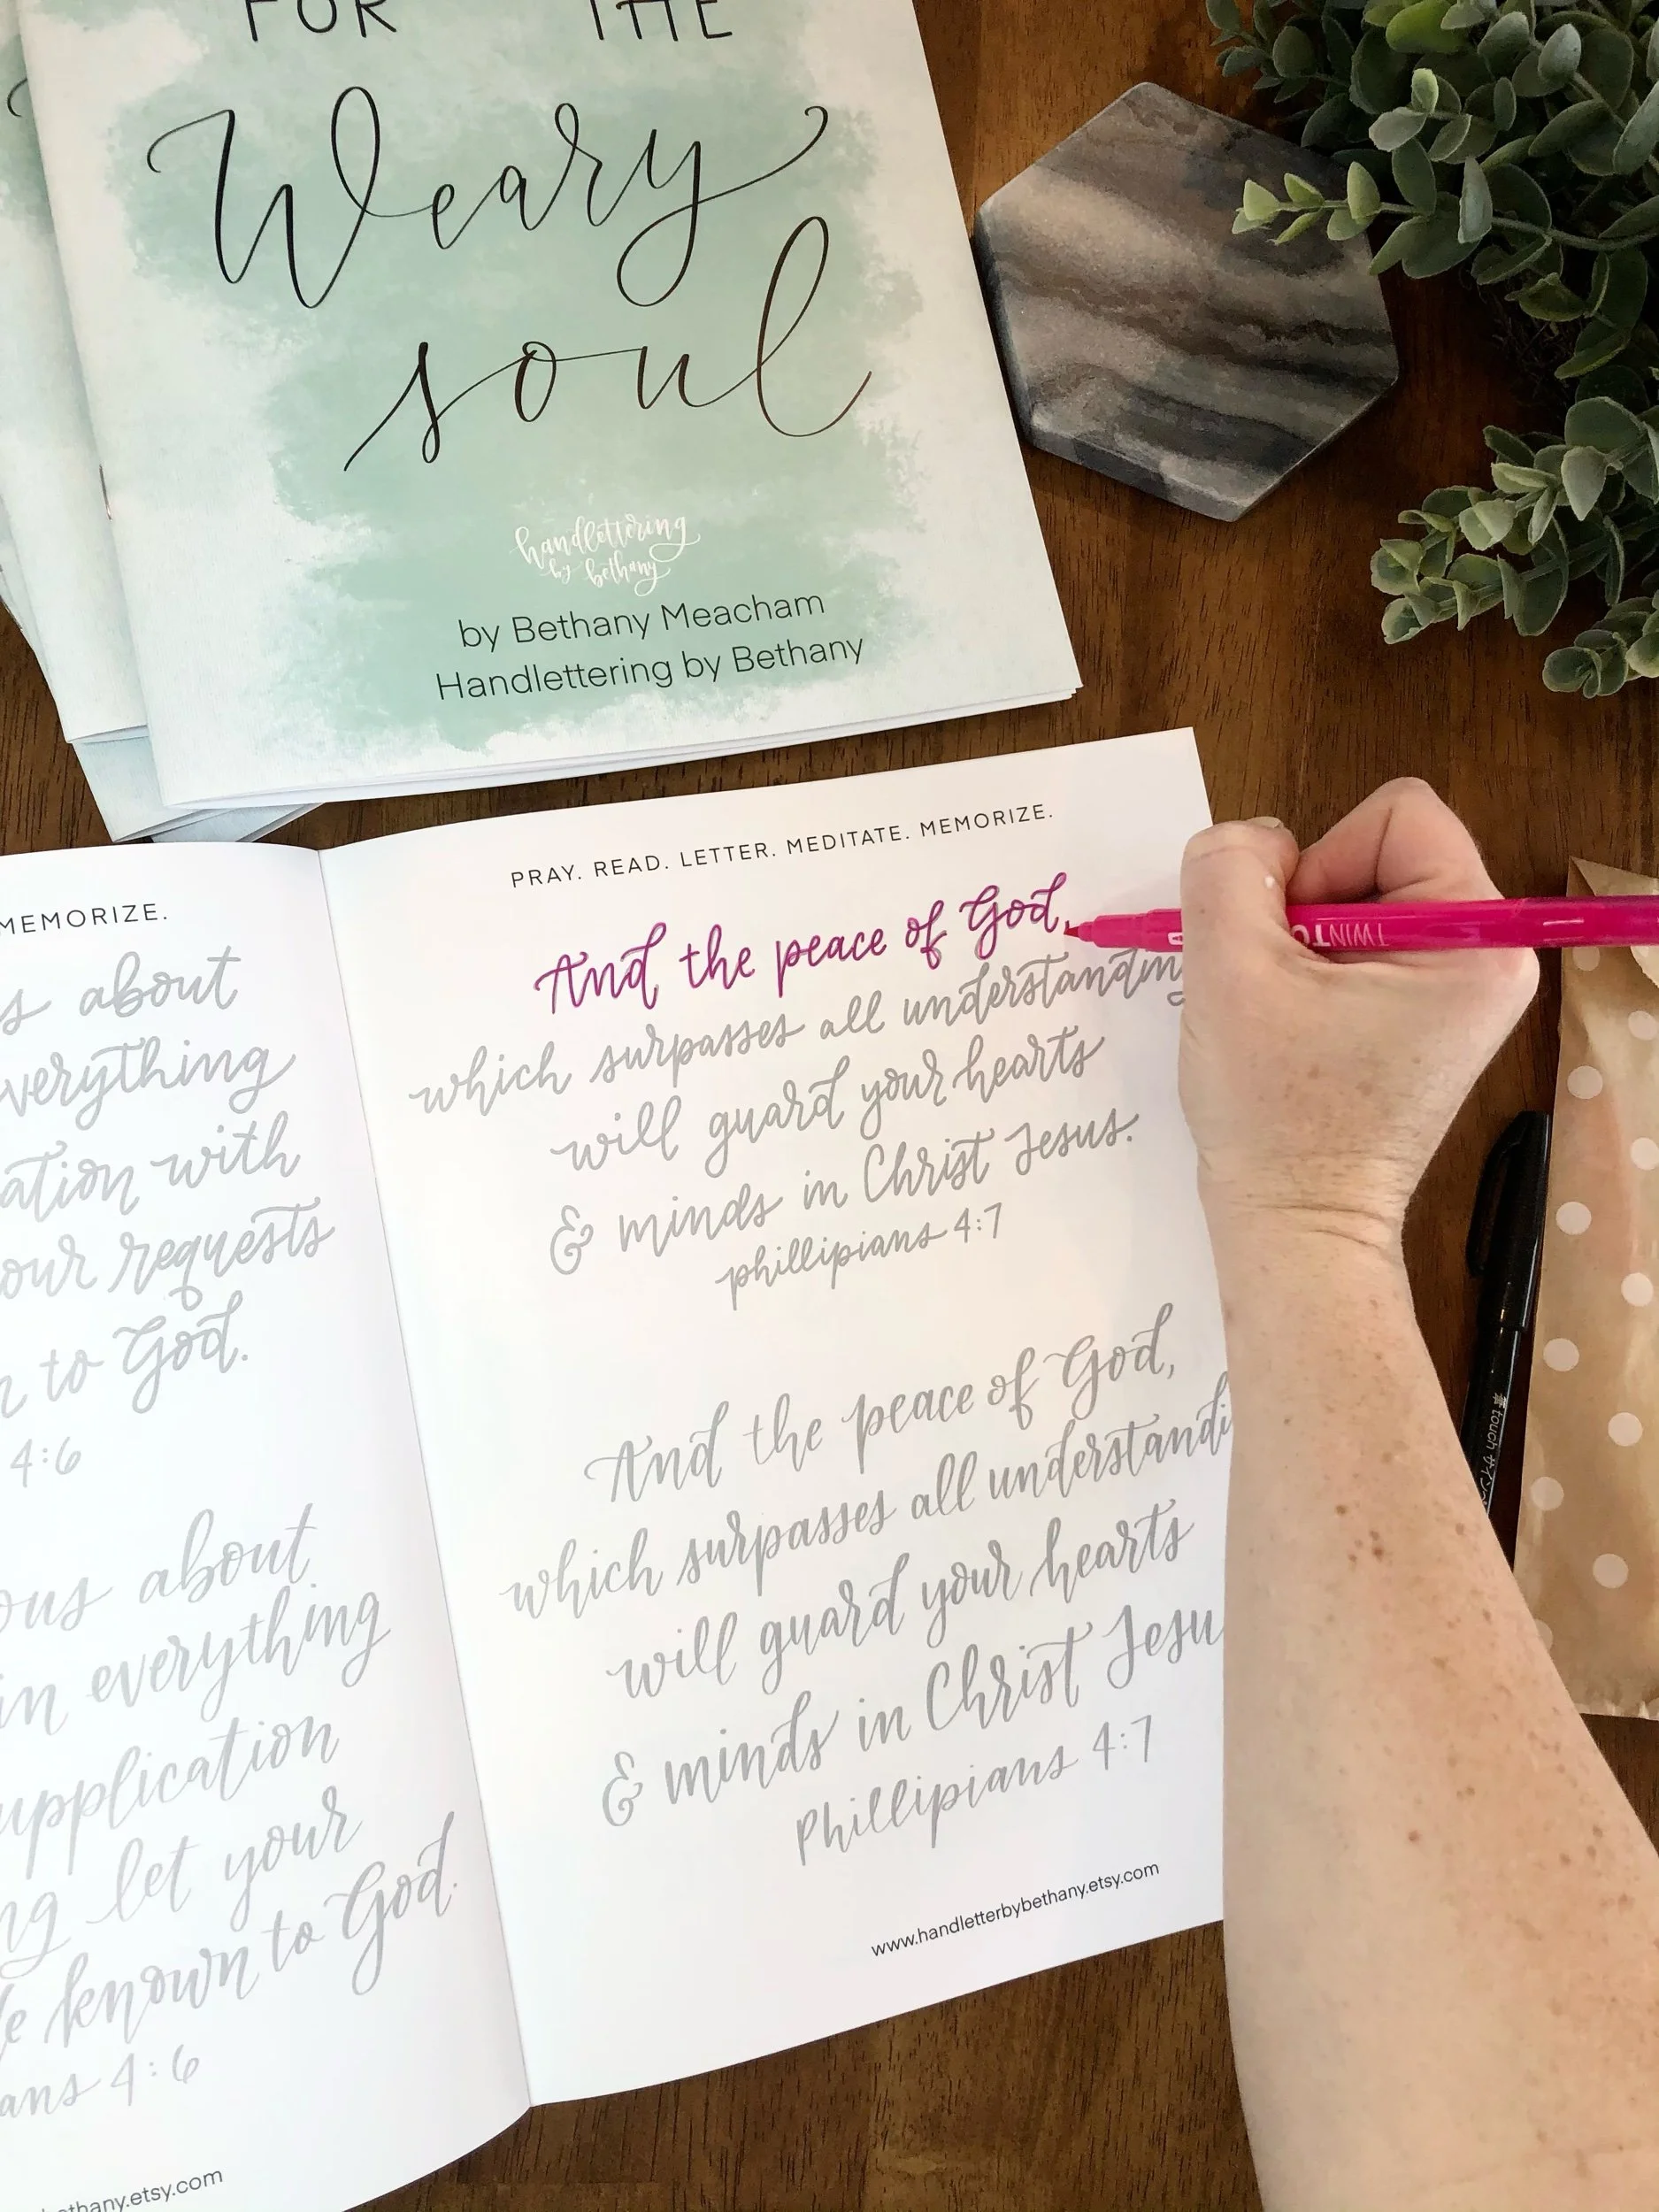 FOR THE
Weary
soul
handlettering
by bethany
by Bethany Meacham
Handlettering by Bethany
MEMORIZE.
about
with
requests
to God.
4:6
about
in everything
let your
known to God.
4:6
PRAY. READ. LETTER. MEDITATE. MEMORIZE.
And the peace of God,
which surpasses all understanding
will guard your hearts
& minds in Christ Jesus.
phillipians 4:7
And the peace of God,
which surpasses all understandi
will guard your hearts
& minds in Christ Jesu
Phillipians 4:7
www.handletterbybethany.etsy.com
TWINTO
#touch